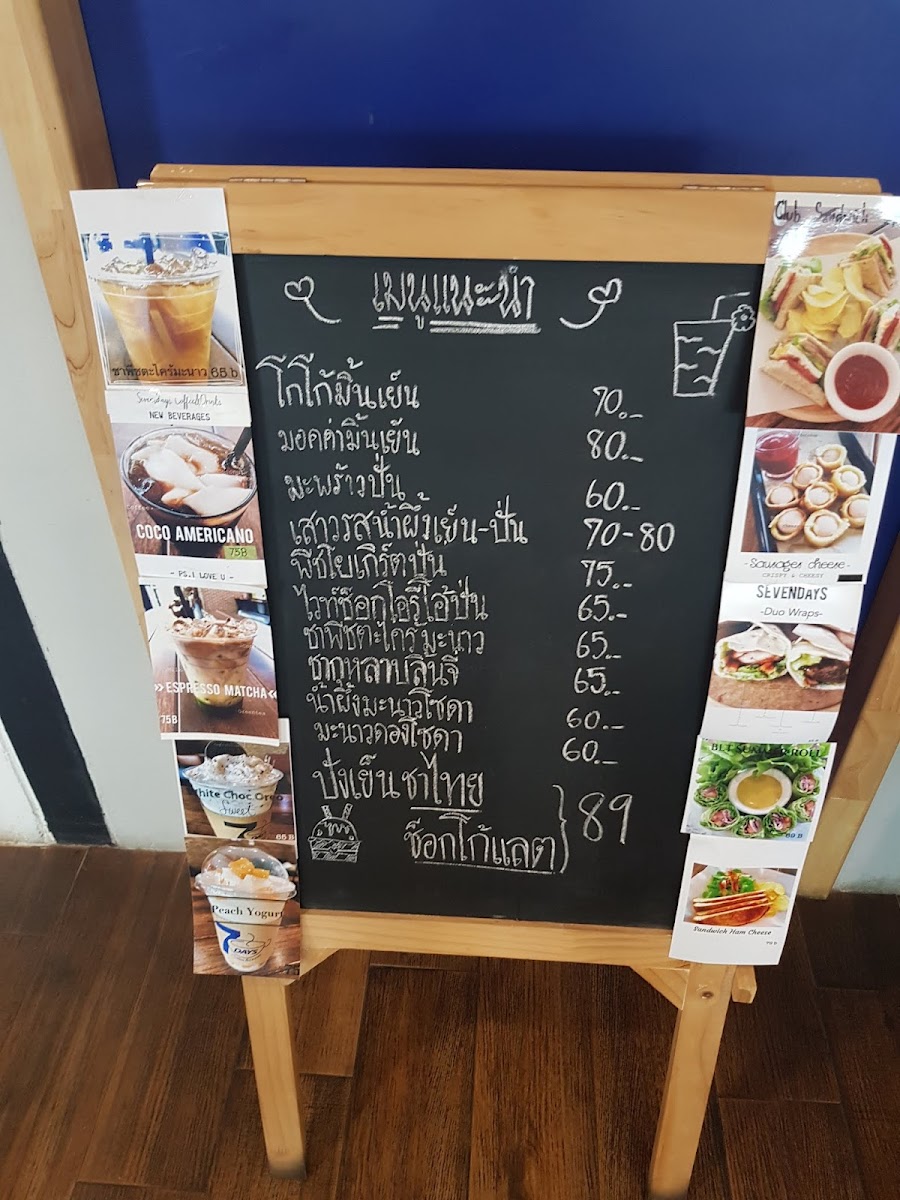 เมนูแนะนำ
โกโก้มิ้นเย็น 70.-
มอคค่ามิ้นเย็น 80.-
มะพร้าวปั่น 60.-
เสาวรสน้ำผึ้งเย็น-ปั่น 70-80
พีชโยเกิร์ตปั่น 75.-
ไวท์ช็อกโอรีโอ้ปั่น 65.-
ชาพีชตะไคร้มะนาว 65.-
ชากุหลาบลิ้นจี่ 65.-
น้ำผึ้งมะนาวโซดา 60.-
มะนาวดองโซดา 60.-
ปังเย็นชาไทย
ช็อกโก้แลต } 89
ชาพีชตะไคร้มะนาว 65 b
NEW BEVERAGES
COCO AMERICANO
75B
- PS. I LOVE U -
»ESPRESSO MATCHA«
75B
White Choc.Oreo
Sweet
7
65 B
Peach Yogurt
7 DAYS
Club Sandwich
-Sausages cheese-
CRISPY & CHEESY
SEVENDAYS
-Duo Wraps-
BLT SALAD ROLL
89 B
Sandwich Ham Cheese
79 B